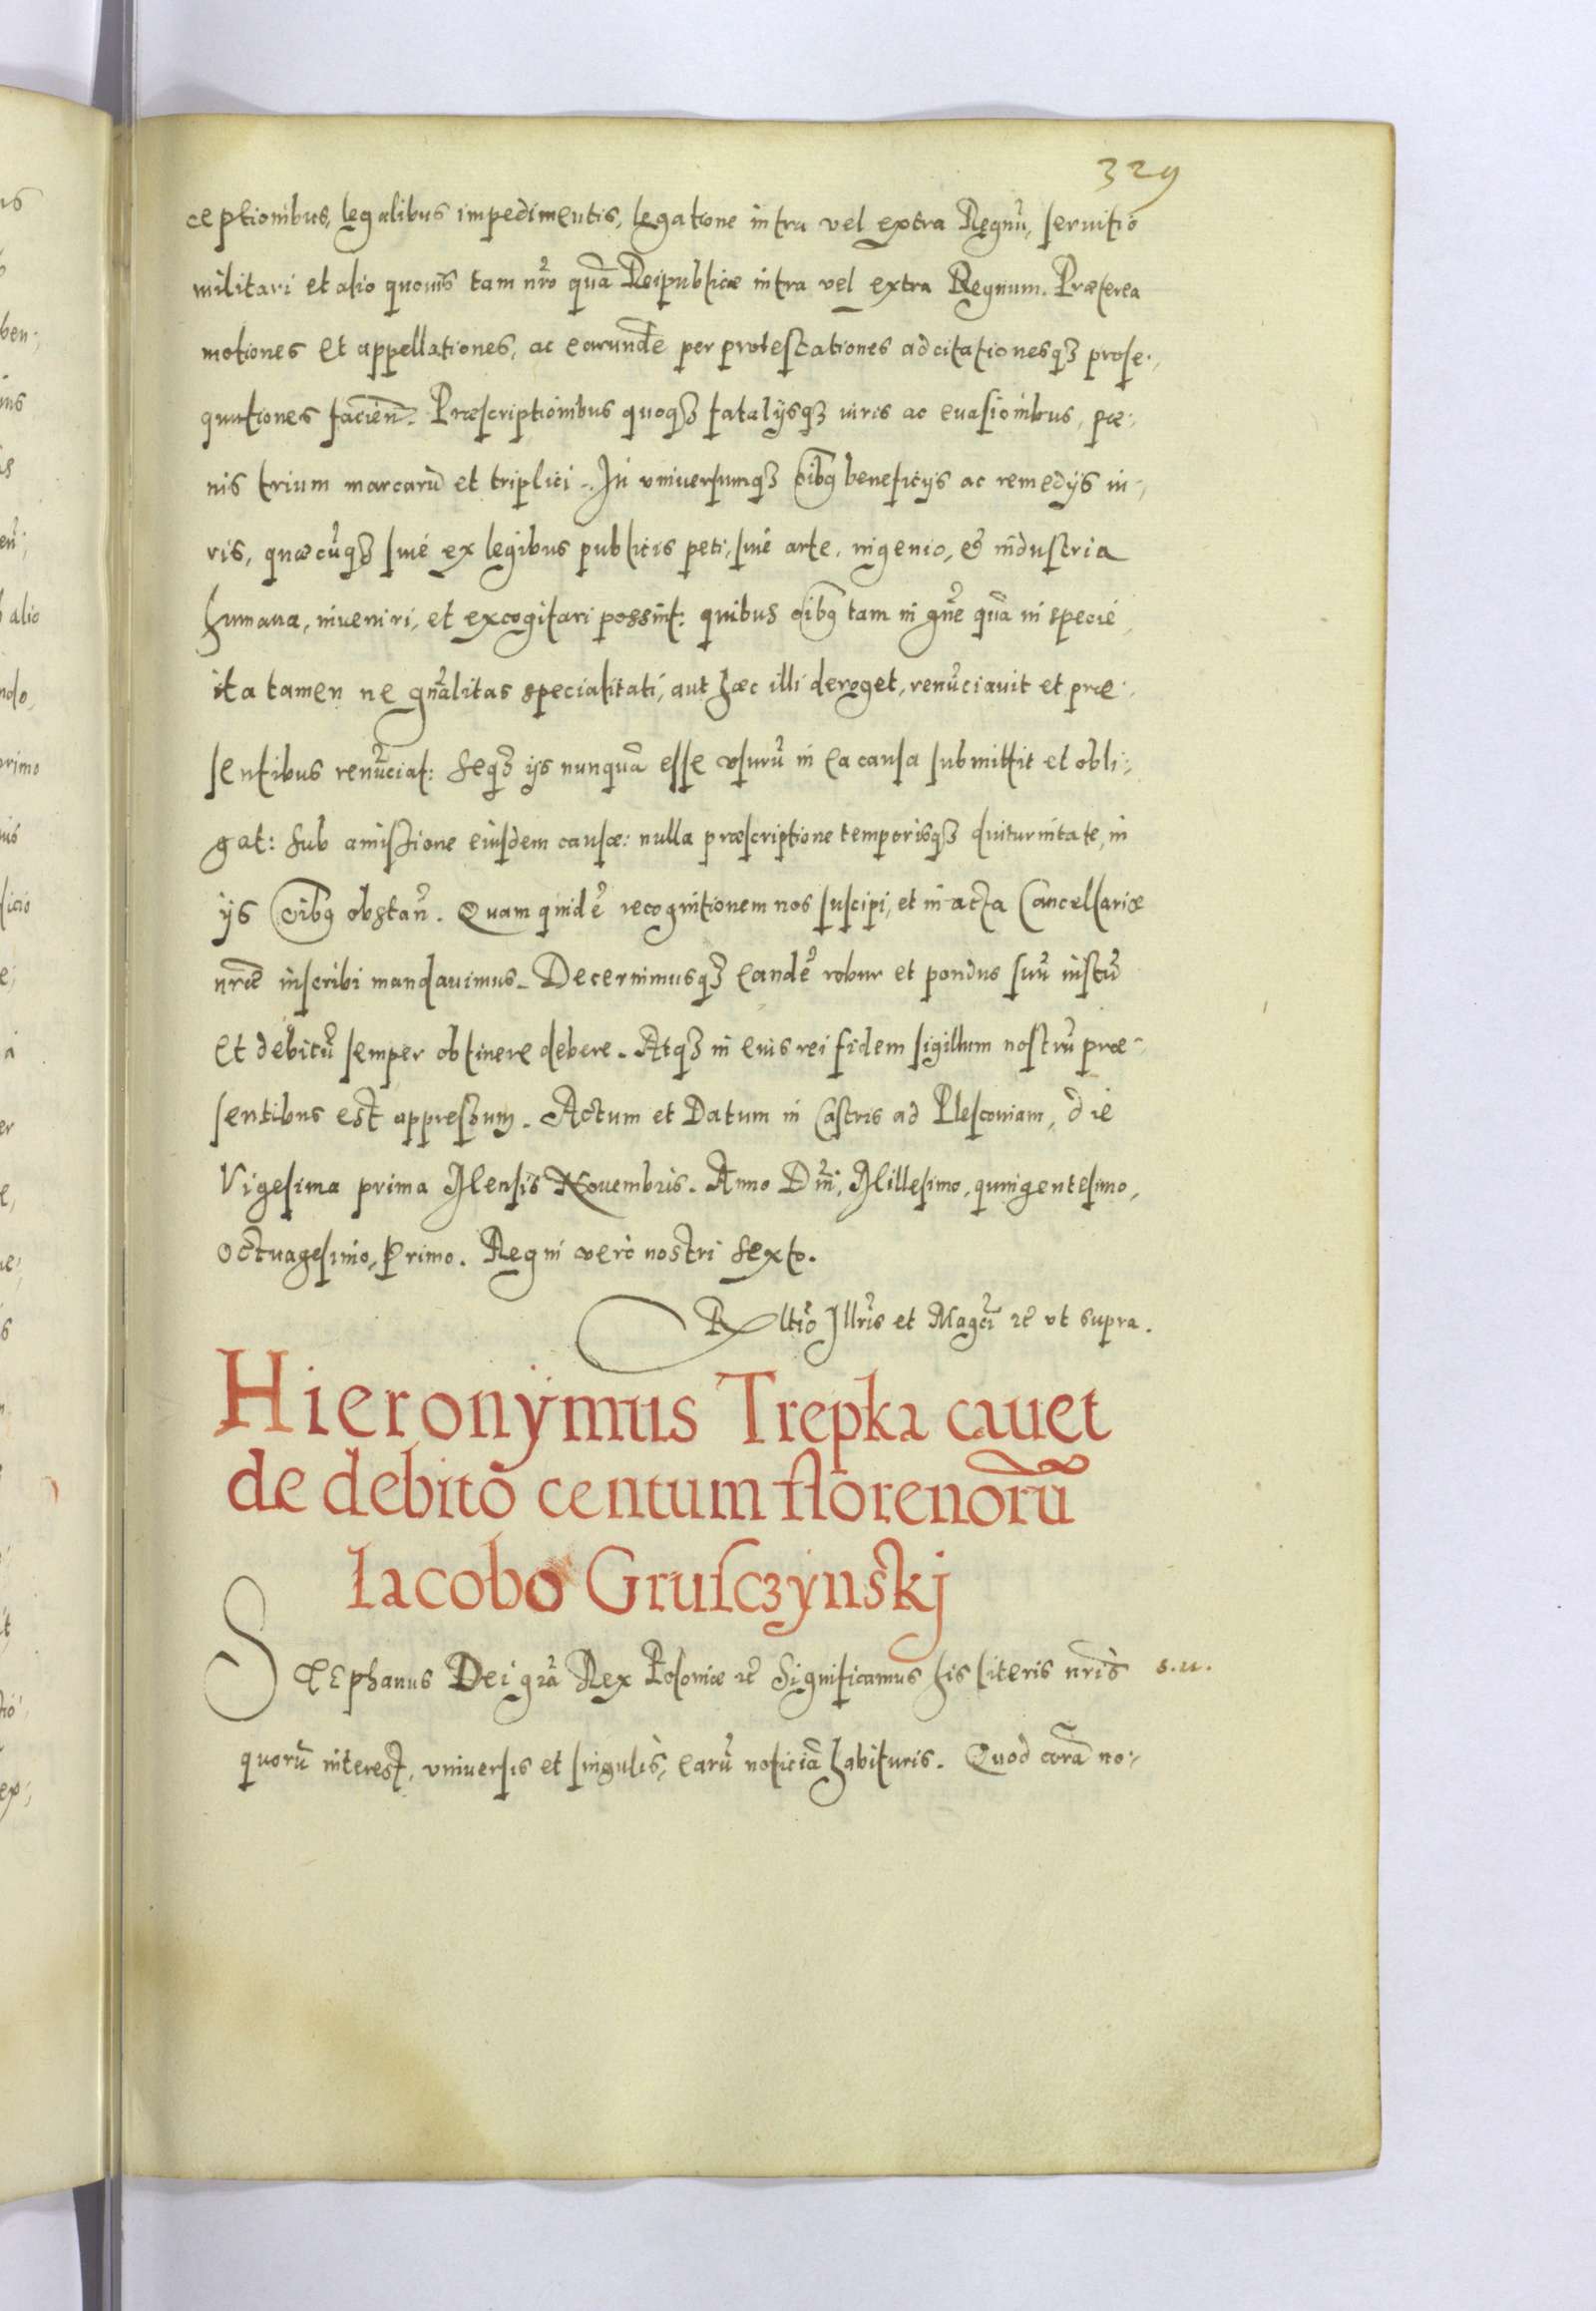 329
ceptionibus, legalibus impedimentis, legatione intra vel extra Regnũ, seruitio
militari et alio quouis tam nr̃o quã Reipublicæ intra vel extra Regnum. Præterea
motiones et appellationes, ac earundẽ per protestationes adcitationesqꝫ prose-
quutiones facien̄. Præscriptionibus quoqꝫ fatalijsqꝫ iuris ac euasionibus, pæ-
nis trium marcarũ et triplici. In vniuersumqꝫ oĩbq beneficijs ac remedijs iu-
ris, quæcũqꝫ siue ex legibus publicis peti, siue arte, ingenio, et industria
humana, inueniri, et excogitari possint: quibus oĩbq tam in gñe quã in specie
ita tamen ne gñalitas specialitati, aut hæc illi deroget, renũciauit et præ-
sentibus renũciat: seqꝫ ijs nunquã esse vsurũ in ea causa submittit et obli-
gat: sub amissione eiusdem causæ: nulla præscriptione temporisqꝫ diuturnitate, in
ijs oĩbq obstañ. Quam quidẽ recognitionem nos suscipi, et in acta Cancellariæ
nr̃æ inscribi mandauimus. Decernimusqꝫ eandẽ robur et pondus suũ iustũ
et debitũ semper obtinere debere. Atqꝫ in eius rei fidem sigillum nostrũ præ-
sentibus est appressum. Actum et Datum in Castris ad Plesconiam, die
Vigesima prima Mensis Nouembris. Anno Dñi, Millesimo, quingentesimo,
octuagesimo, Primo. Regni vero nostri sexto.
Rltio Illr̃is et Magci ꝛc̃ vt supra.
Hieronÿmus Trepka cauet
de debito centum florenorũ
Iacobo Grusczÿnskj
Stephanus Dei gr̃a Rex Poloniæ ꝛc̃ Significamus his literis nr̃is s.u.
quorũ interest, vniuersis et singulis, earũ noticiã habituris. Quod corã no-